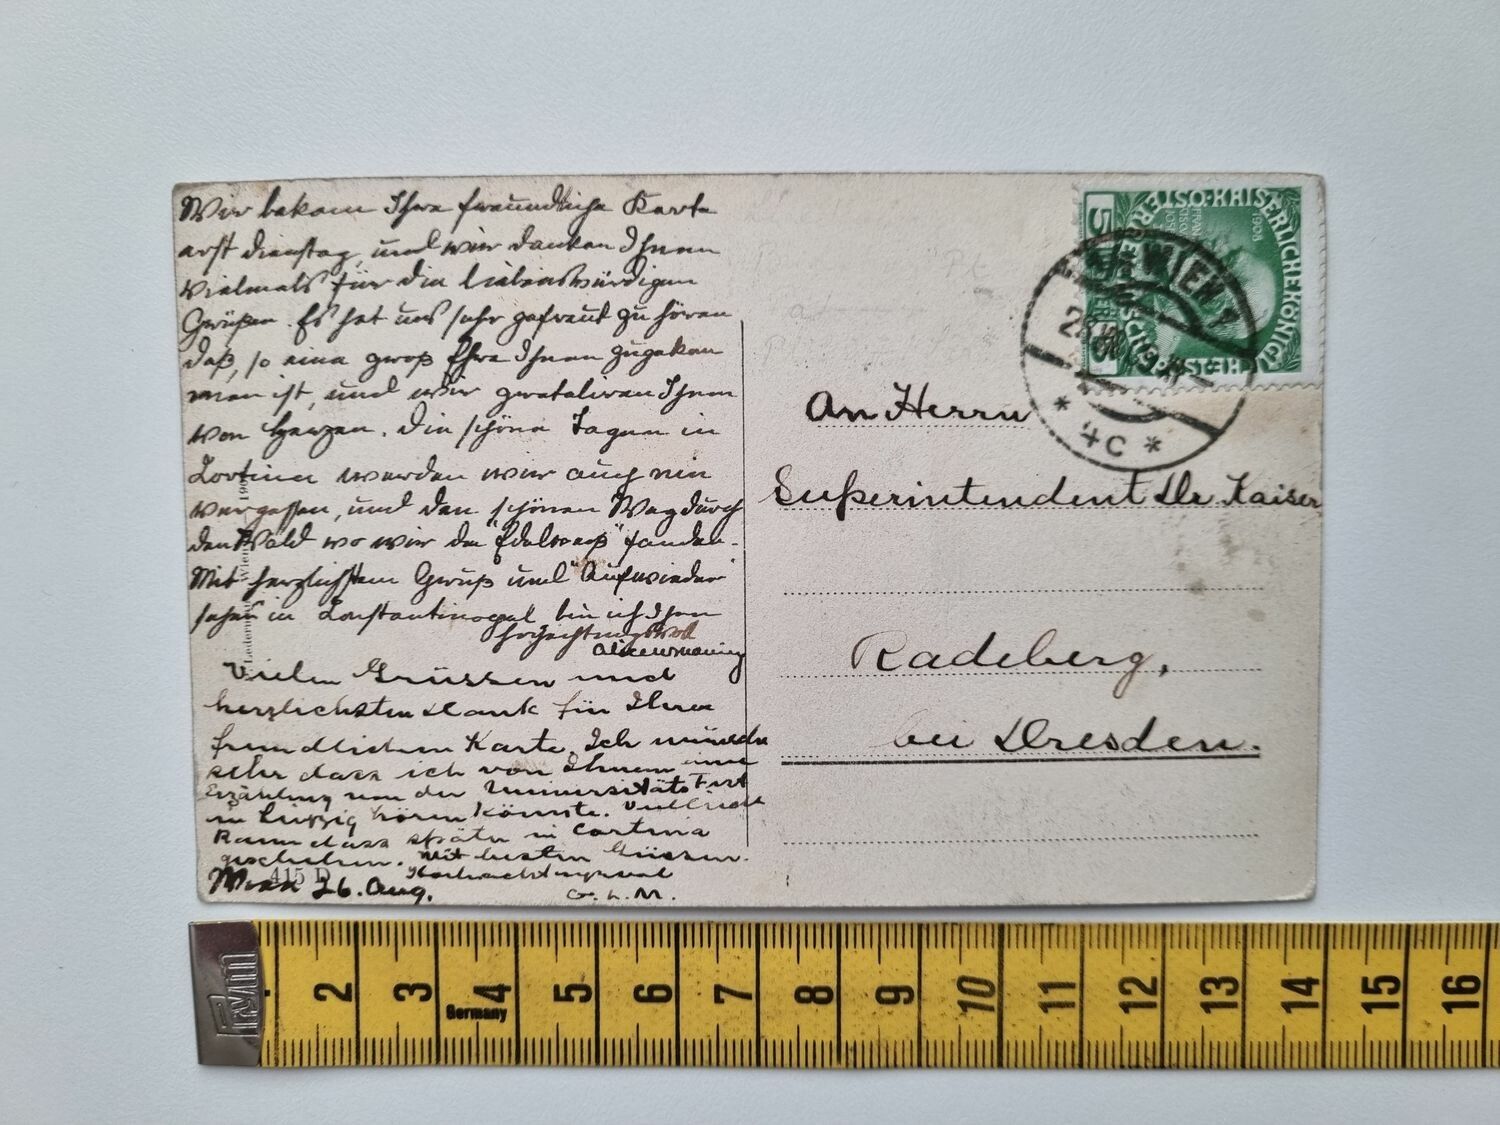 Wir bekam Ihre freundliche Karte
erst dienstag, und wir danken Ihnen
vielmals für die liebenswürdigen
Grüßen. Es hat uns sehr gefreut zu hören
daß, so eine groß Ehre Ihnen zugekom
men ist, und wir gratuliren Ihnen
von Herzen. Die schöne Tagen in
Cortina werden wir auch nie
vergessen, und den schönen Weg durch
den Wald wo wir die "Edelweiß" fanden.
Mit herzlichstem Gruß und "Aufwieder
sehen in Constantinopel bin ich Ihre
hochachtungsvoll
Vielen Grüssen und
herzlichsten Dank für Ihre
freundlichen Karte. Ich wünsche
sehr dass ich von Ihnen eine
Erzählung von der Universitäts Fest
in Leipzig hören könnte. Vielleicht
kann dass später in Cortina
geschehen. Mit besten Grüssen.
Hochachtungsvoll
G. L. M.
Wien 26. Aug.
415 D
An Herrn
Superintendent Dr Kaiser
Radeberg,
bei Dresden.
WIEN 1
* 4c *
KAISERLICHE KÖNIGLICHE
1908
5
5
Prym
2 3 4 5 6 7 8 9 10 11 12 13 14 15 16
Germany